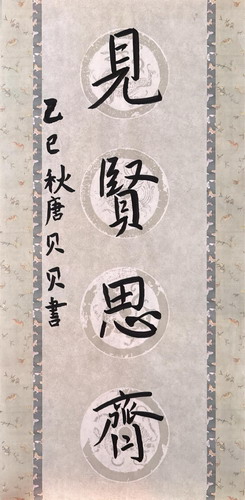 見賢思齊
乙巳秋唐贝贝書